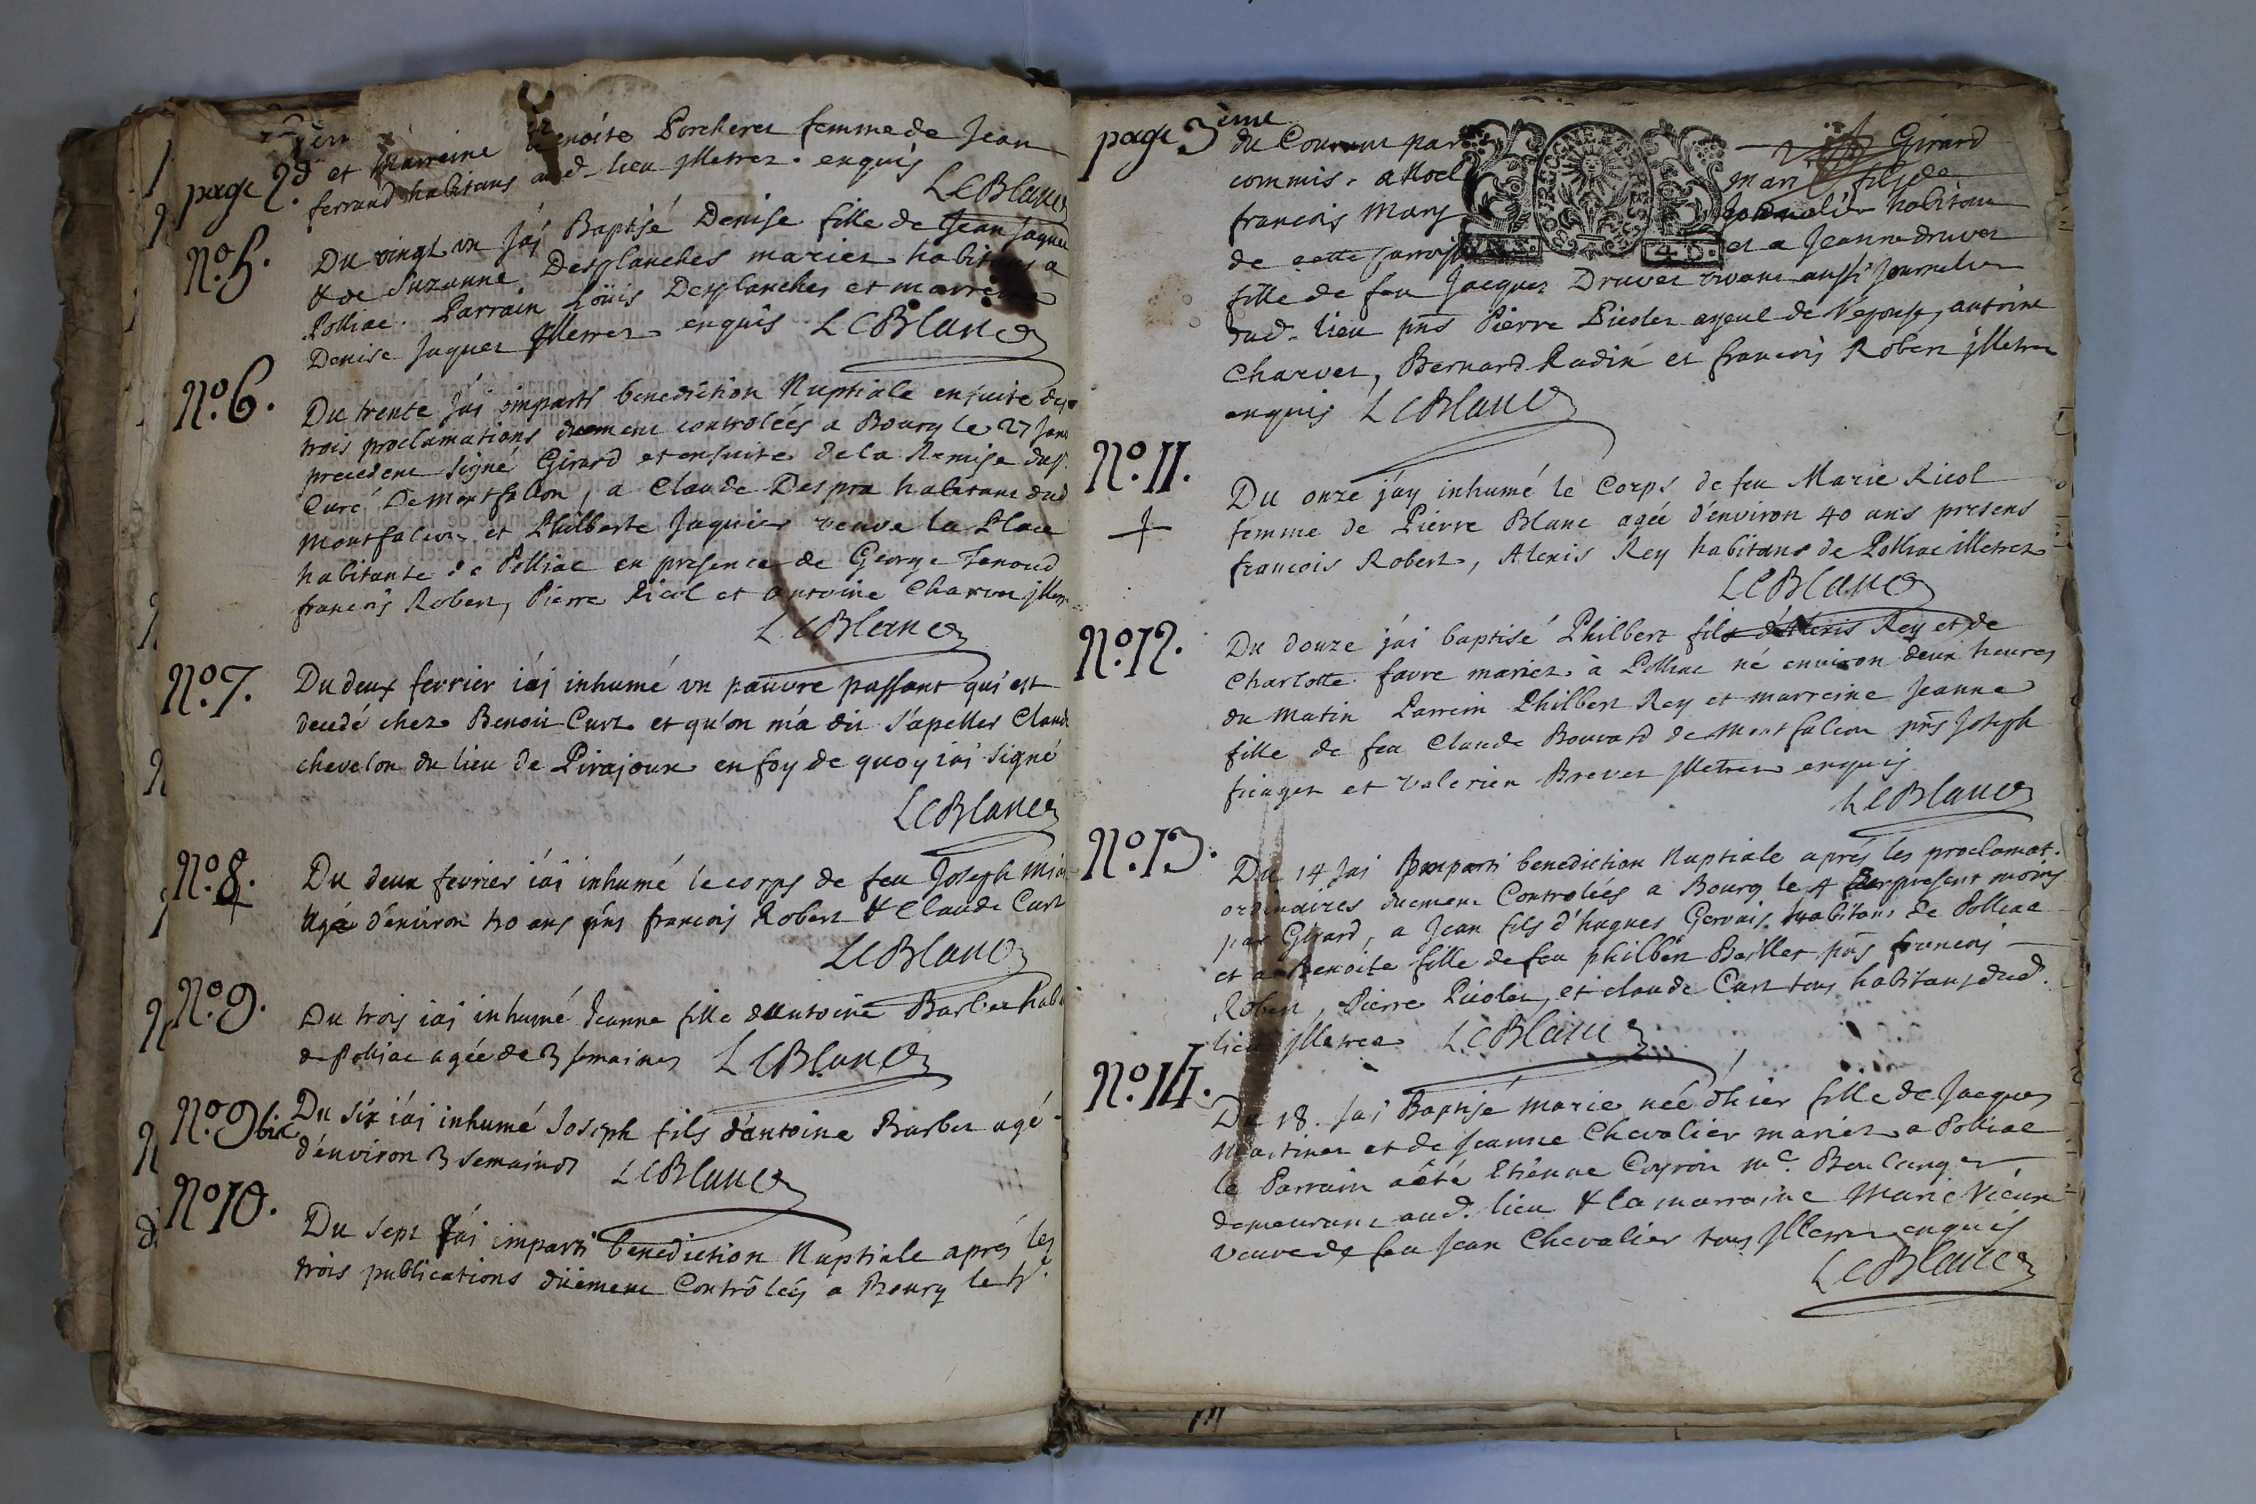 page 2d et Marreine Benoite Porcheres femme de Jean
ferrand habitans aud. lieu jlletrez. enquis
LEBlanc
No. 5. Du vingt un jai Baptisé Denise fille de Jean Jaquez
& de Suzanne Desplanches mariez habitans a
Polliac. Parrain Loüis Desplanches et marreine
Denise Jaquez jlletrez enquis LEBlanc
No. 6. Du trente jai imparti benediction Nuptiale ensuite des
trois proclamations duement controléés a Bourg le 27 janv
precedent signé Girard et ensuite de la Remise du sr.
Curé De Montfalcon, a Claude Despra habitant dud
Montfalcon et Philberte Jaquier veuve la Place
habitante de Polliac en presence de George
francois Robert, Pierre Ricol et antoine Charvet jlletrez
LEBlanc
No. 7. Du deux fevrier iai inhumé vn pauvre passant qui est
decedé chez Benoit Curt et qu'on m'a dit s'apeller Claude
chevelon du lieu de Pirajoux en foy de quoy iai signé
LEBlanc
No. 8. Du deux fevrier iai inhumé le corps de feu Joseph
Agé d'environ ans pns francois Robert & Claude Curt
LEBlanc
No. 9. Du trois iai inhumé Jeanne fille d'Antoine Barbet habit
de Polliac agée de 3 semaines LEBlanc
No. 9 bis Du six iai inhumé Joseph fils d'antoine Barbet agé
d'environ 3 semaines LEBlanc
No 10. Du sept Jai imparti benediction Nuptiale aprés les
trois publications düement Contrôleés a Bourg le
page 3ème du Courant par Girard
commis. a Noel mari fils de
francois Mary Journalier habitant
de cette parroisse et a Jeanne druvet
fille de feu Jacquez Druvet vivant aussi Journalier
dud. lieu pns Pierre Picolet ayeul de l'Epouse, antoine
Charvet, Bernard Radix et francois Robert jlletrez
enquis LEBlanc
No. 11. Du onze j'ay inhumé le Corps de feu Marie Ricol
femme de Pierre Blanc agée d'environ 40 ans presens
francois Robert, Alexis Rey habitans de Polliac illetrez
LEBlanc
No. 12. Du douze j'ai baptisé Philbert fils d'Alexis Rey et de
Charlotte favre mariez à Polliac né environ deux heures
du matin Parrein Philbert Rey et marreine Jeanne
fille de feu Claude Bouvard de Montfalcon pns Joseph
et valerien Brevet jlletrez enquis
LEBlanc
No. 13. Du 14 Jai imparti benediction Nuptiale aprés les proclamat.
ordinaires duement Controleés a Bourg le 4 du present mois
par Girard, a Jean fils d'hugues Gervais habitant de Polliac
et a Benoite fille de feu philbert Baillet pns francois
Robert, Pierre Picolet, et claude Curt tous habitans dud.
lieu jlletrez LEBlanc
No. 14. Du 18. Jai Baptisé Marie née d'hier fille de Jacques
Martinet et de Jeanne Chevalier mariez a Polliac
le Parrain a été Etiènne Coyron me. Boulanger
demeurant aud. lieu & la marraine Marie Vieux
veuve de feu Jean Chevalier tous jlletrez enquis
LEBlanc